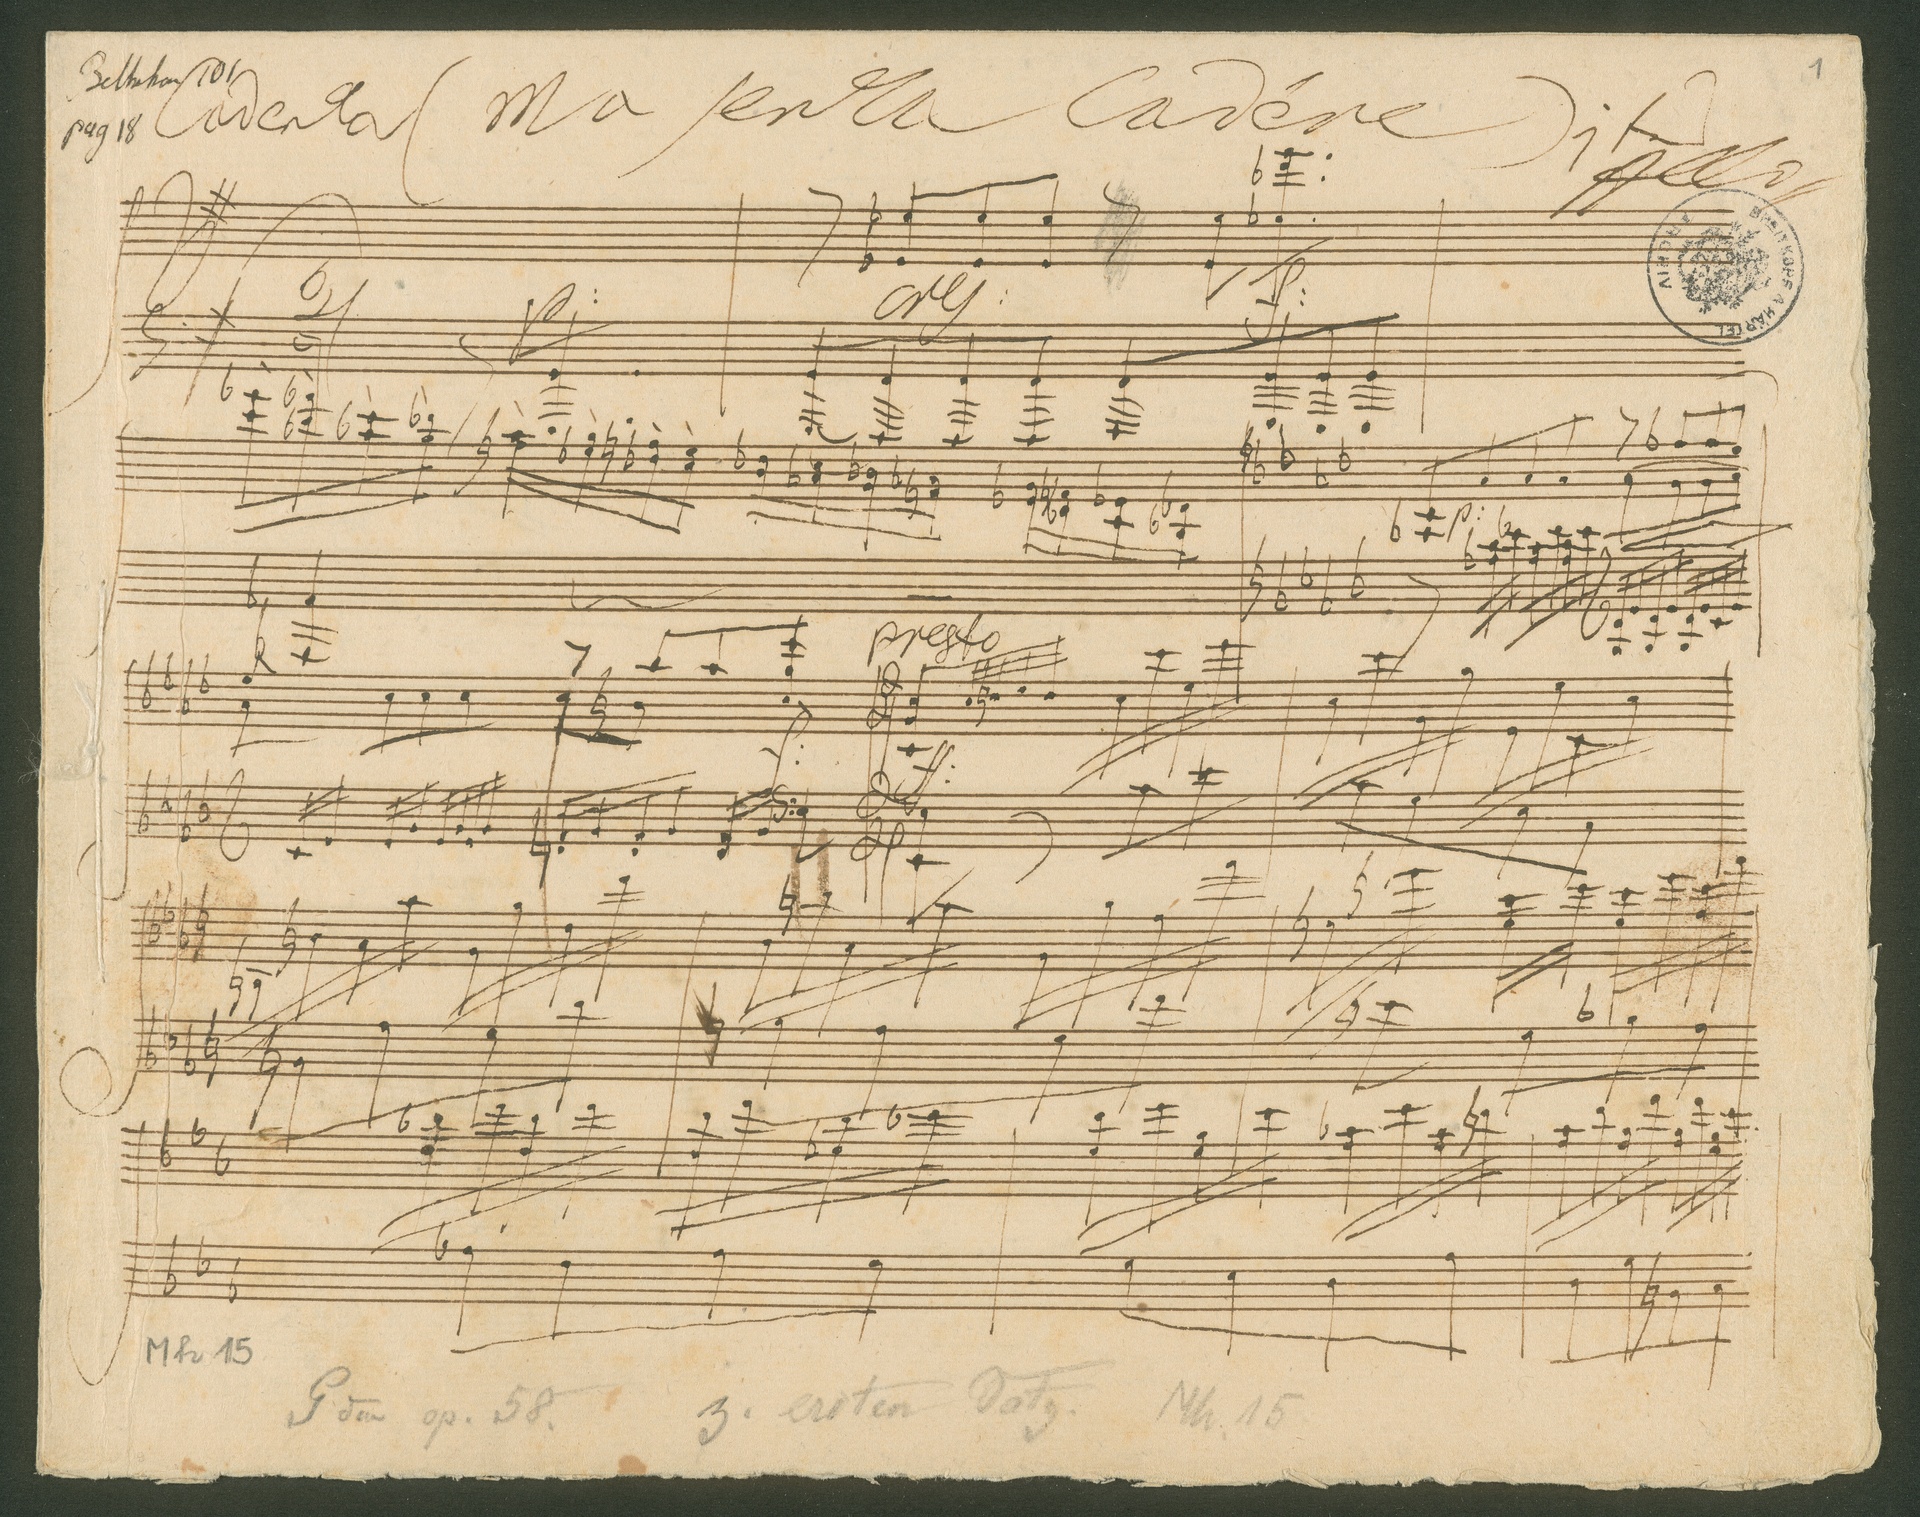 1
Beethoven 101
pag 18
Cadenza (Ma senza cadere)
p:
cresc:
f:
p:
presto
f:
ff:
Mh 15
G dur op. 58. z. ersten Satz. Mh. 15
ARCHIV BREITKOPF & HÄRTEL